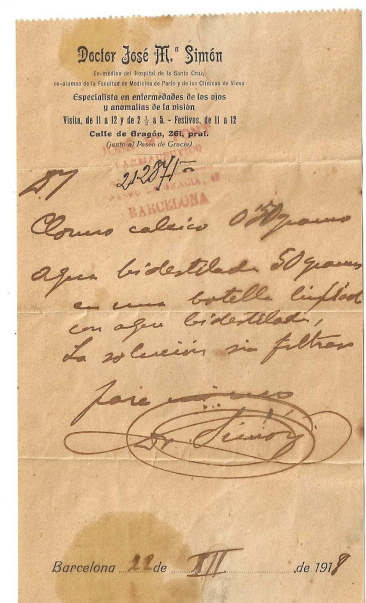 Doctor José M.ª Simón
Ex-médico del Hospital de la Santa Cruz,
ex-alumno de la Facultad de Medicina de París y de las Clínicas de Viena
Especialista en enfermedades de los ojos
y anomalías de la visión
Visita, de 11 a 12 y de 2 ½ a 5. - Festivos, de 11 a 12
Calle de Aragón, 261, pral.
(junto al Paseo de Gracia)
BARCELONA
Cloruro calcico 0'50 gramos
agua bidestilada 50 gramos
en una botella limpiada
con agua bidestilada,
La solución sin filtrar
para
Dr. Simón
Barcelona 22 de XII de 1918